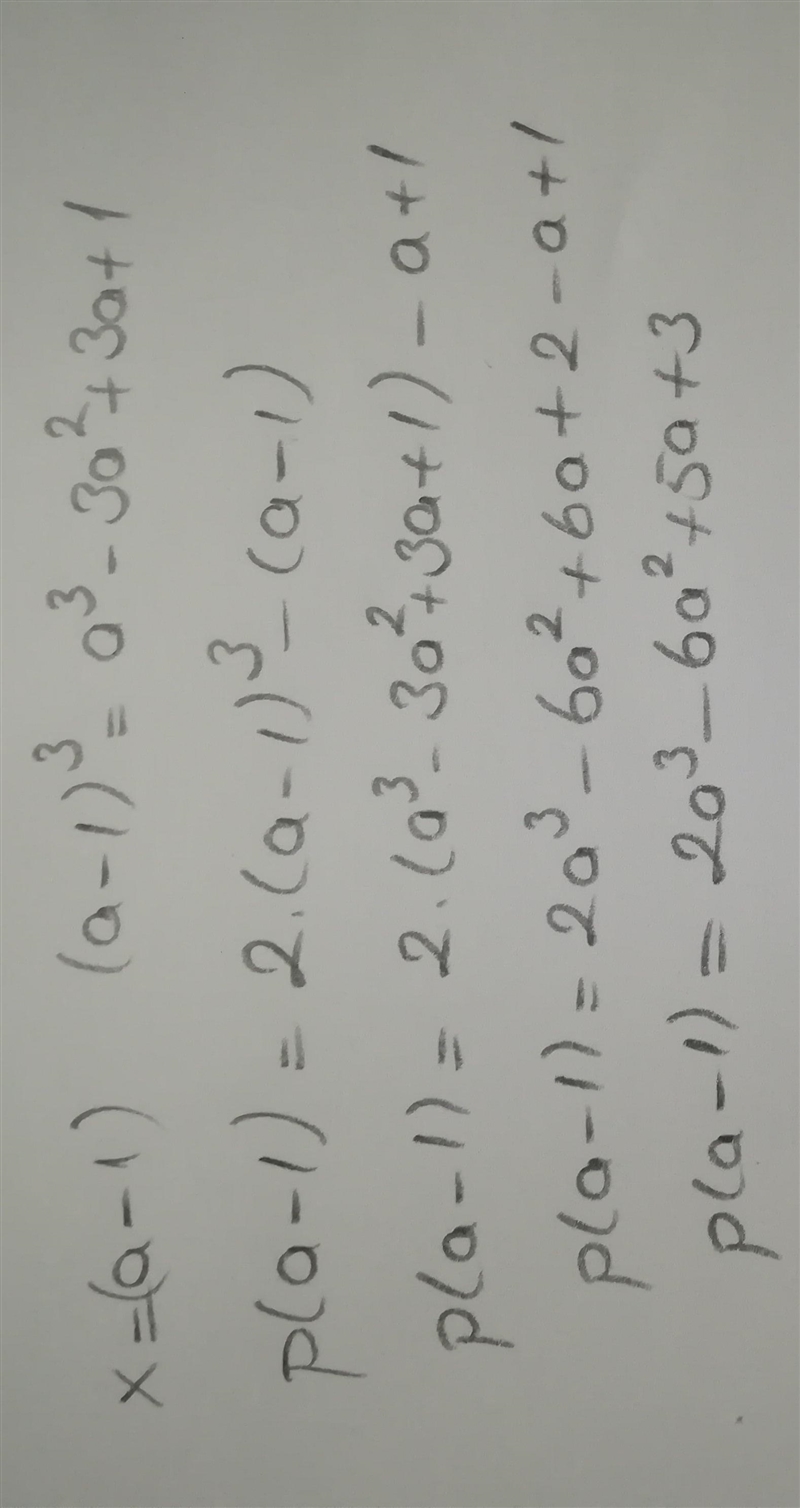 x=(a-1) (a-1)³ = a³ - 3a² + 3a + 1
p(a-1) = 2.(a-1)³ - (a-1)
p(a-1) = 2.(a³ - 3a² + 3a + 1) - a + 1
p(a-1) = 2a³ - 6a² + 6a + 2 - a + 1
p(a-1) = 2a³ - 6a² + 5a + 3